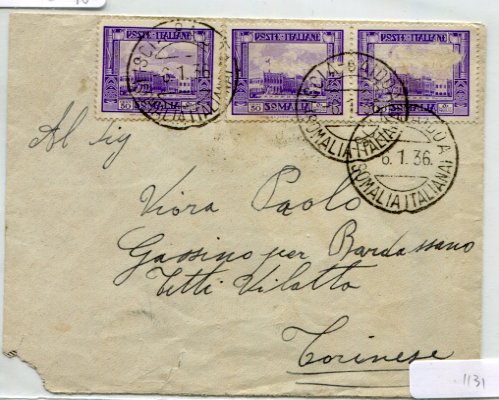 POSTE ITALIANE POSTE ITALIANE POSTE ITALIANE
SOMALIA 35 SOMALIA
6.1.36
SOMALIA ITALIANA
6.1.36.
SOMALIA ITALIANA
Al sig
Viora Paolo
Gassino per Bardassano
Tetti Vilatta
Torinese
1131